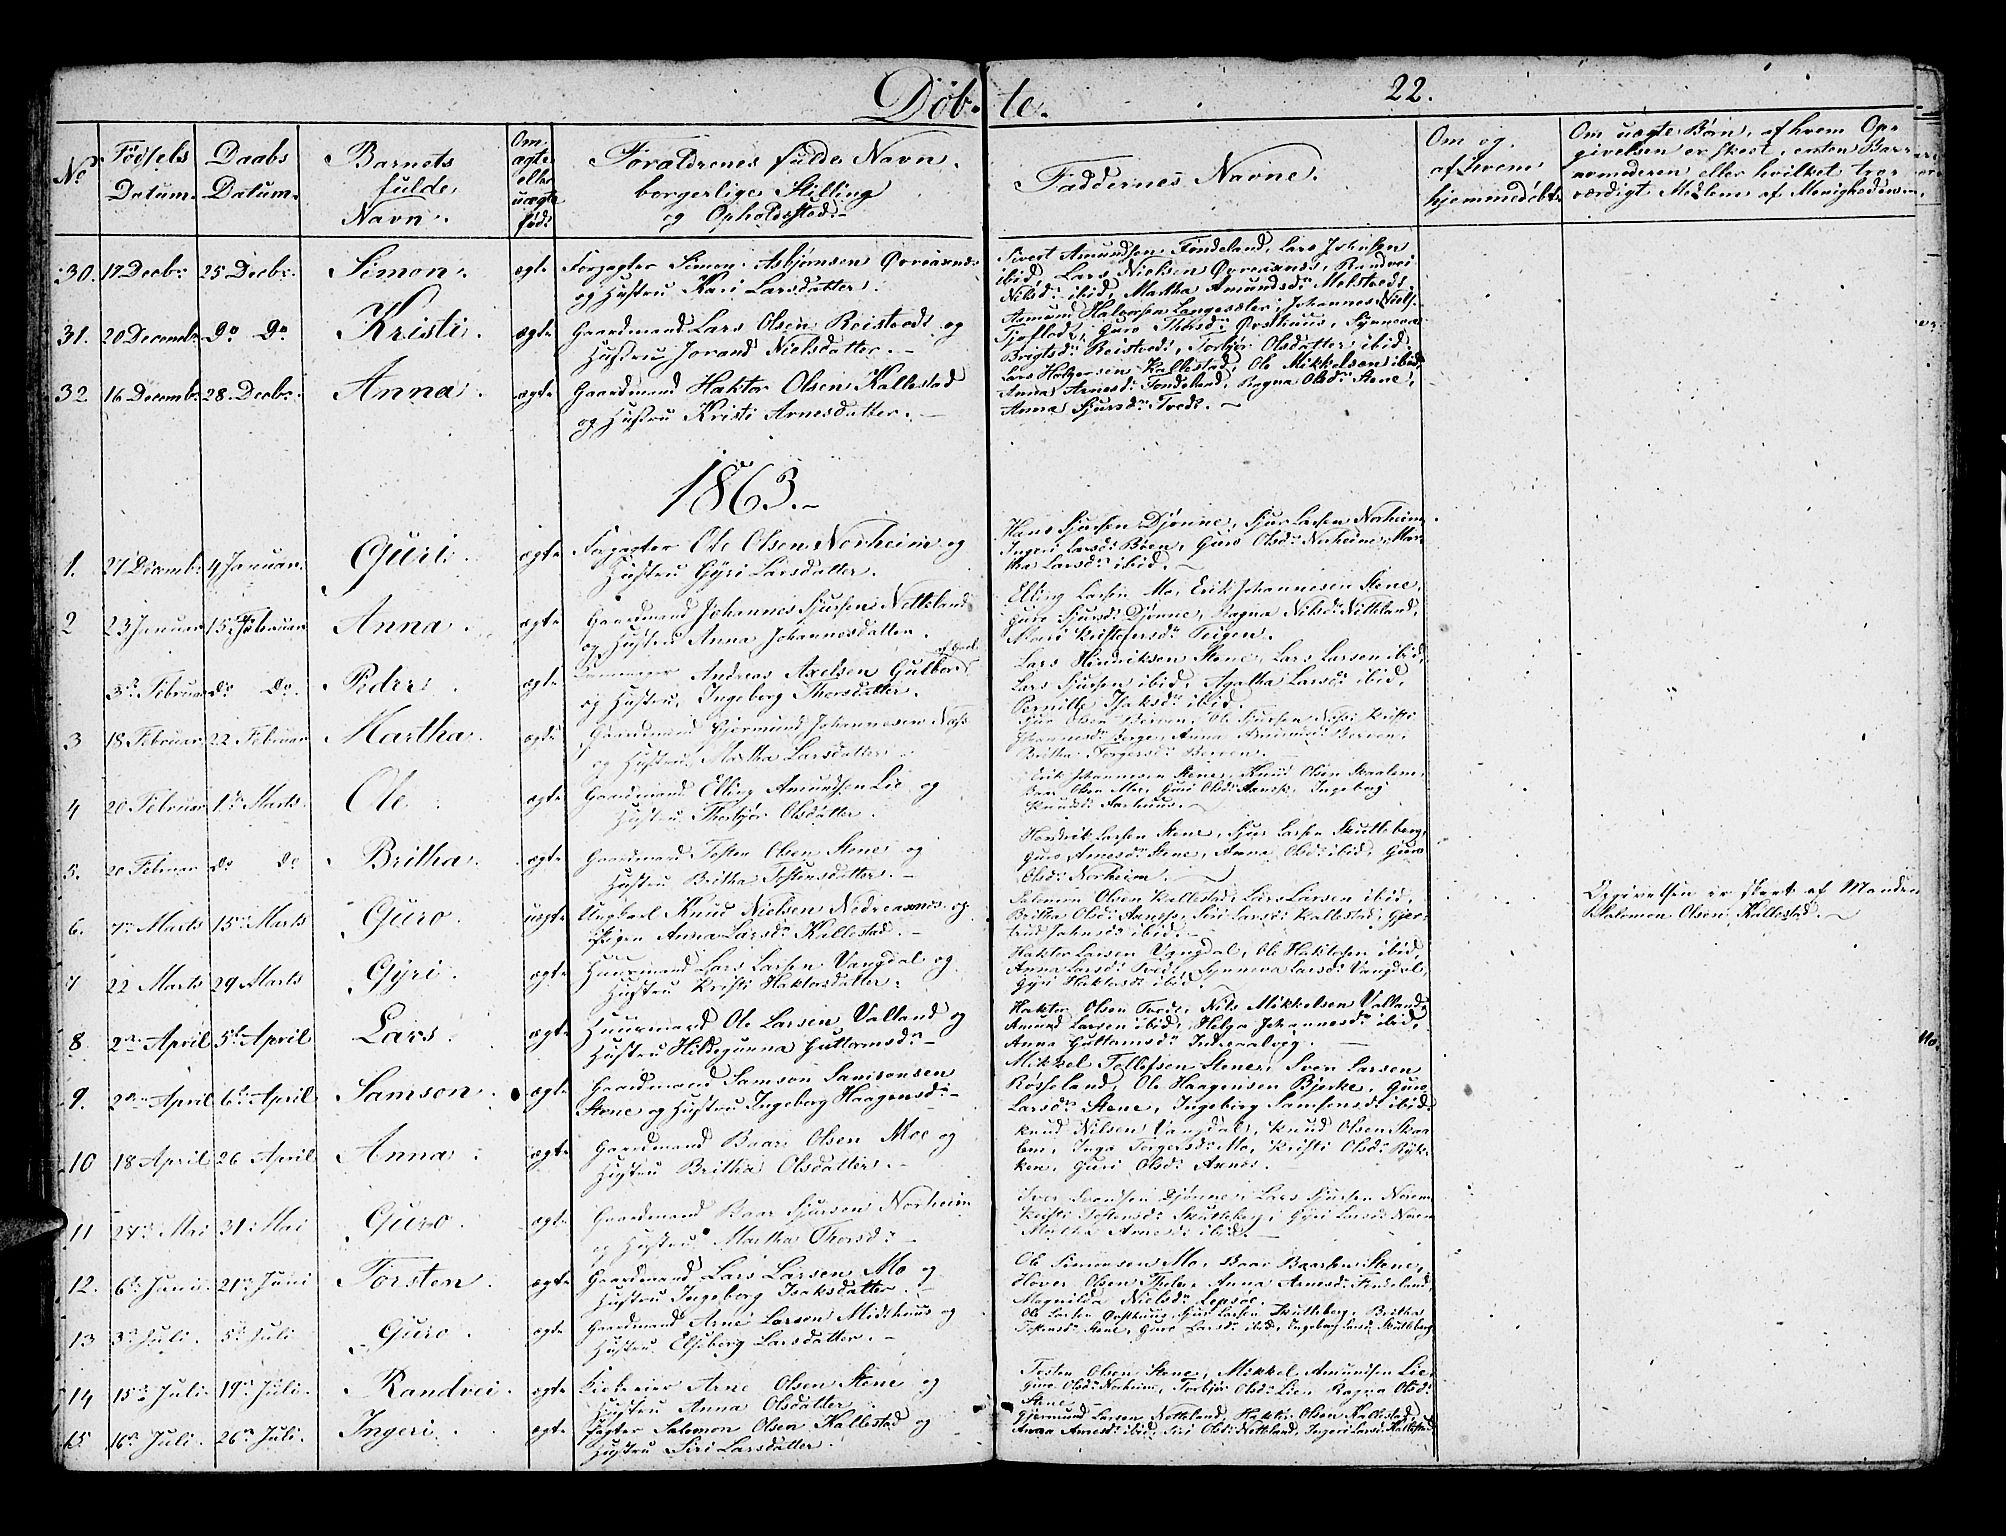 Döb- te. 22.
No. Fødsels Datum. Daabs Datum. Barnets fulde Navn. Om ægte eller uægte født Forældrenes fulde Navn, borgerlige Stilling og Opholdssted.
Faddernes Navne. Om og af hvem hjemmedøbt Om uægte Børn, af hvem Opgivelsen er skeet, enten Barnemoderen eller hvilket troværdigt Medlem af Menigheden
30. 17 Decbr. 25 Decbr. Simon. ægte Forpagter Simon Asbjørnsen Øvreaxnes
og Hustru Kari Larsdatter.
Sivert Amundsen Fondeland, Lars Johnsen
ibid, Lars Nielsen Øvreaxnes, Randvei
Nilsdr. ibid, Martha Amundsdr. Melstvedt.
31. 20 Decembr. Do Do Kristi. ægte Gaardmand Lars Olsen Reistvedt og
Hustru Jorand Nielsdatter.
Asmund Halvorsen Langesæter, Johannes Niels.
Tjoflodt, Guro Thorsdr. Østhuus, Synneva
Brigtsdr. Reistvedt, Torbjør Olsdatter ibid.
32 16 Decembr. 28. Decbr. Anna. ægte Gaardmand Haktor Olsen Kallestad
og Hustru Kristi Arnesdatter.
Lars Hakorsen Kallestad, Ole Mikkelsen ibid,
Anna Arnesdr. Fondeland, Ragna Olsdr. Stene,
Anna Sjursdr. Tvedt.
1863.
1. 27 Decembr. 4 Januar. Guri. ægte Forpagter Ole Olsen Norheim og
Hustru Gyri Larsdatter.
Hans Sjursen Djønne, Sjur Larsen Norheim
Ingeri Larsdr. Bøen, Guro Olsdr. Norheim, Mar-
tha Larsdr. ibid.
2 23 Januar 15 Februar Anna. ægte Gaardmand Johannes Sjursen Netteland
og Hustru Anna Johannesdatter.
Elling Larsen Mo, Erik Johannesen Stene,
Guro Sjursdr. Djønne, Ragna Nilsdr. Netteland,
Mari Kristofersdr. Teigen.
3de Februar do Do. Peder. ægte Andreas Axelsen Gulbert
og Hustru Ingeborg Thorsdatter.
Lars Hindriksen Stene, Lars Larsen ibid,
Lars Sjursen ibid, Agatha Larsdr. ibid,
Pernille Isaksdr. ibid.
3 18 Februar 22 Februar Martha. ægte Gaardmand Gjermund Johannesen Næss
og Hustru Martha Larsdatter.
Olsen Berven, Ole Sjursen Næss, Kristi
Johannesdr. Berge, Anna Berven,
Britha Torgersdr. Berven.
4 20 Februar 1ste Marts. Ole. ægte Gaardmand Elling Amundsen Lie og
Hustru Thorbjør Olsdatter.
Erik Johannesen Stene, Knud Olsen Skaalem,
Baar Olsen Moe, Guri Olsdr. Axnes, Ingeborg
Knudsdr. Aarhuus.
5. 20 Februar do do Britha. ægte Gaardmand Tosten Olsen Stene og
Hustru Britha Tostensdatter.
Hendrik Larsen Stene, Sjur Larsen Skutleberg,
Guro Arnesdr. Stene, Anna Olsdr. ibid, Guro
Olsdr. Norheim.
6. 7de Marts 15de Marts Guro. uægte Ungkarl Knud Nielsen Nedreaxnes og
Pigen Anna Larsdr. Kallestad.
Salomon Olsen Kallestad, Lars Larsen ibid,
Britha Olsdr. Axnes, Siri Larsdr. Kallestad, Gjer-
trud Johnsdr. ibid.
Opgivelsen er skeet af Manden
Salomon Olsen Kallestad.
7 22 Marts 29 Marts Gyri. ægte Huusmand Lars Larsen Vangdal og
Hustru Kristi Haktorsdatter.
Haktor Larsen Vangdal, Ole Haktorsen ibid,
Anna Larsdr. Tvedt, Synneva Larsdr. Vangdal,
Gyri Haktorsdr. ibid.
8. 2den April 5te April Lars. ægte Huusmand Ole Larsen Valland og
Hustru Hildegunna Guttormsdr.
Haktor Olsen Tvedt, Nils Mikkelsen Valland,
Amund Larsen ibid, Helga Johannesdr. ibid,
Anna Guttormsdr. Indreaalvig.
9. 2den April 6te April Samson. ægte Gaardmand Samson Samsonsen
Stene og Hustru Ingeborg Haagensdr.
Mikkel Tollefsen Stene, Sven Larsen
Røseland, Ole Haagensen Bjerke, Guro
Larsdr. Stene, Ingeborg Samsonsdr. ibid.
10 18 April 26 April Anna. ægte Gaardmand Baar Olsen Moe og
Hustru Britha Olsdatter.
Knud Nilsen Vangdal, Knud Olsen Skaa-
lem, Inga Torgersdr. Mo, Kristi Olsdr. Ryk-
ken, Guri Olsdr. Axnes.
11 24de Mai 31 Mai Guro. ægte Gaardmand Baar Sjursen Norheim
og Hustru Martha Thorsdr.
Iver Svendsen Djønne, Lars Sjursen Norheim
Kristi Tostensdr. Skutleberg, Gyri Larsdr. Norheim
Martha Arnesdr. ibid.
12. 6te Juni 21de Juni Torsten. ægte Gaardmand Lars Larsen Mo og
Hustru Ingeborg Isaksdatter.
Ole Simonsen Mo, Baar Baarsen Stene,
Hover Olsen Anna Arnesdr. Fondeland,
Magnilda Nielsdr. Lepsøe.
13 3de Juli. 5te Juli. Guro. ægte Gaardmand Arne Larsen Midthuus og
Hustru Elseborg Larsdatter.
Ole Larsen Østhuus, Sjur Larsen Skutleberg, Britha
Tostensdr. Stene, Guro Larsdr. ibid, Ingeborg Larsdr. Skutleberg
14 15de Juli. 19de Juli. Randvei. ægte Arne Olsen Stene og
Hustru Anna Olsdatter.
Tosten Olsen Stene, Mikkel Amundsen Lie,
Guro Olsdr. Norheim, Torbjør Olsdr. Lien, Ragna Olsdr.
Stene.
15 16de Juli. 26de Juli. Ingeri. ægte Forpagter Salomon Olsen Kallestad og
Hustru Siri Larsdatter.
Gjermund Larsen Netteland, Haktor Olsen Kallestad,
Anna Arnesdr. ibid, Siri Olsdr. Netteland, Ingeri Larsdr. Kallestad